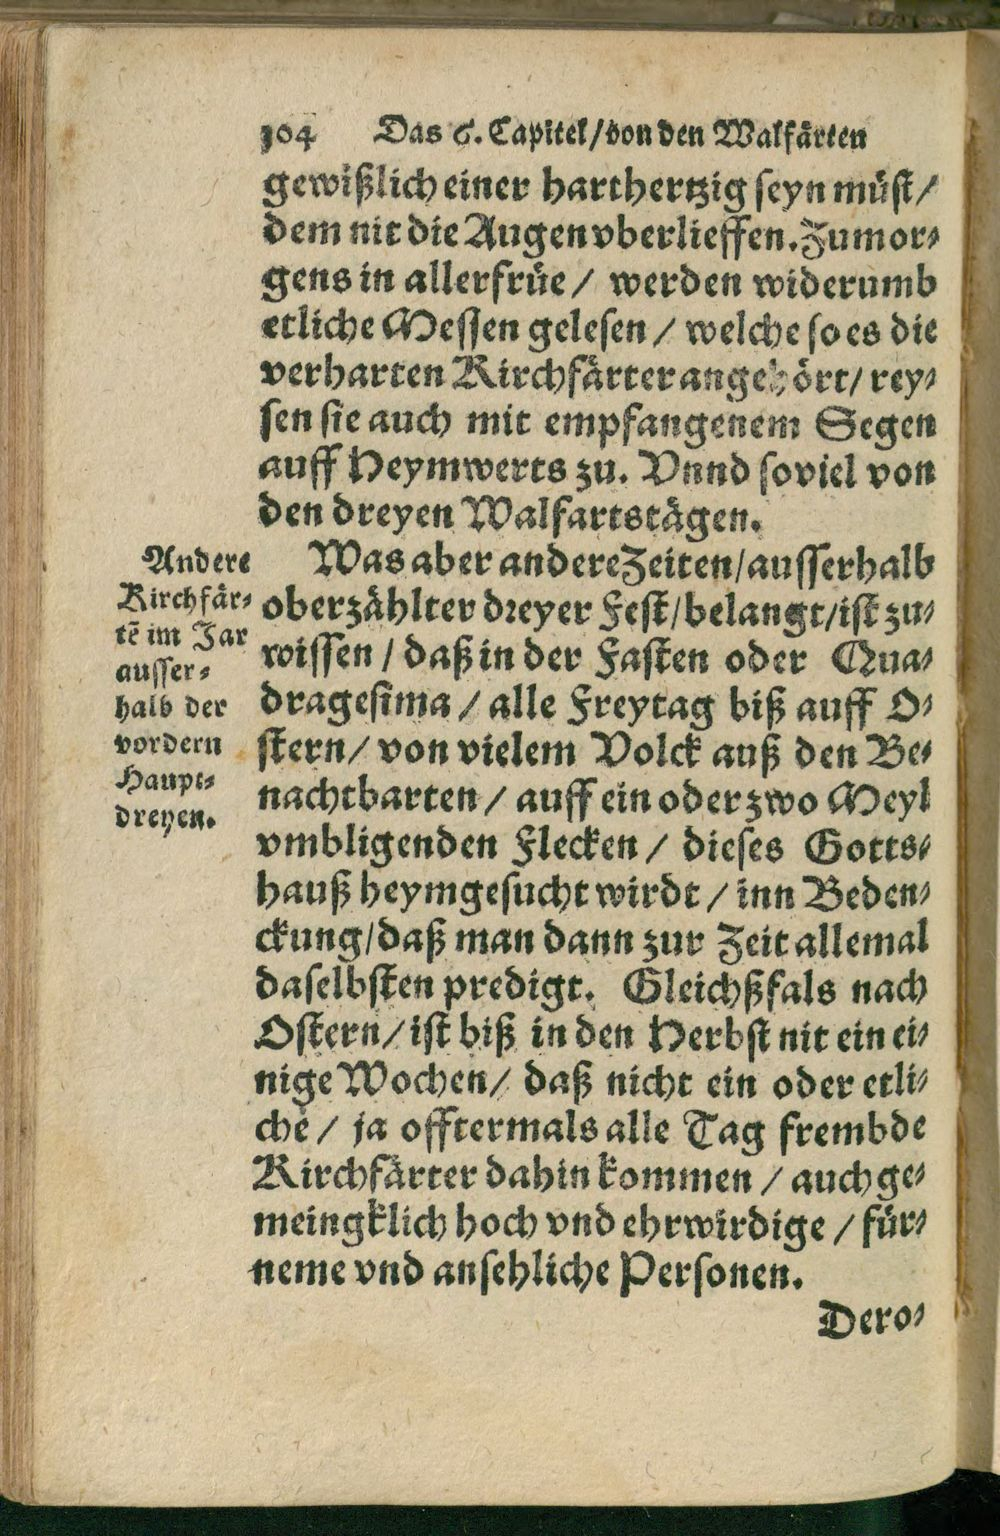 104 Das 6. Capitel/von den Walfärten
gewißlich einer harthertzig seyn müst/
dem nit die Augen vberlieffen. Zumor⸗
gens in aller früe / werden widerumb
etliche Messen gelesen / welche so es die
verharten Kirchfärter angehört/ rey⸗
sen sie auch mit empfangenem Segen
auff Heymwerts zu. Vnnd soviel von
den dreyen Walfartstägen.
Was aber andere Zeiten/ausserhalb
oberzählter dreyer Fest/belangt/ist zu⸗
wissen / daß in der Fasten oder Qua⸗
dragesima / alle Freytag biß auff O⸗
stern/ von vielem Volck auß den Be⸗
nachtbarten / auff ein oder zwo Meyl
vmbligenden Flecken / dieses Gotts⸗
hauß heymgesucht wirdt / inn Beden⸗
ckung/daß man dann zur Zeit allemal
daselbsten predigt. Gleichßfals nach
Ostern/ist biß in den Herbst nit ein ei⸗
nige Wochen/ daß nicht ein oder etli⸗
che / ja offtermals alle Tag frembde
Kirchfärter dahin kommen / auch ge⸗
meingklich hoch vnd ehrwirdige / für⸗
neme vnd ansehliche Personen.
Dero⸗
Andere
Kirchfär⸗
tẽ im Jar
ausser⸗
halb der
vordern
Haupt⸗
dreyen.